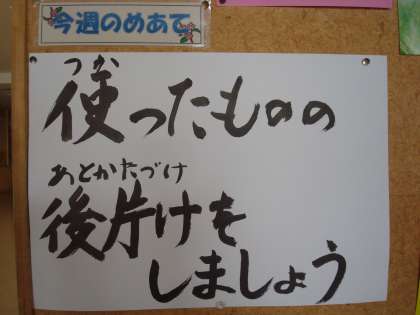 今週のめあて
つか
使ったものの
あとかたづけ
後片けを
しましょう